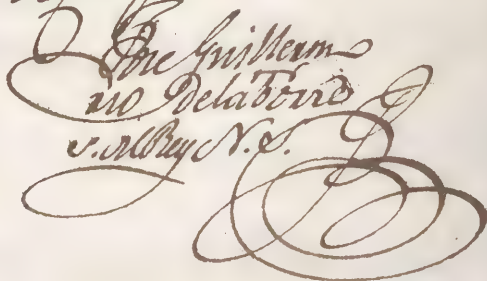 Jose Guillerm
mo Delatorre
s. Al Rey N. S.